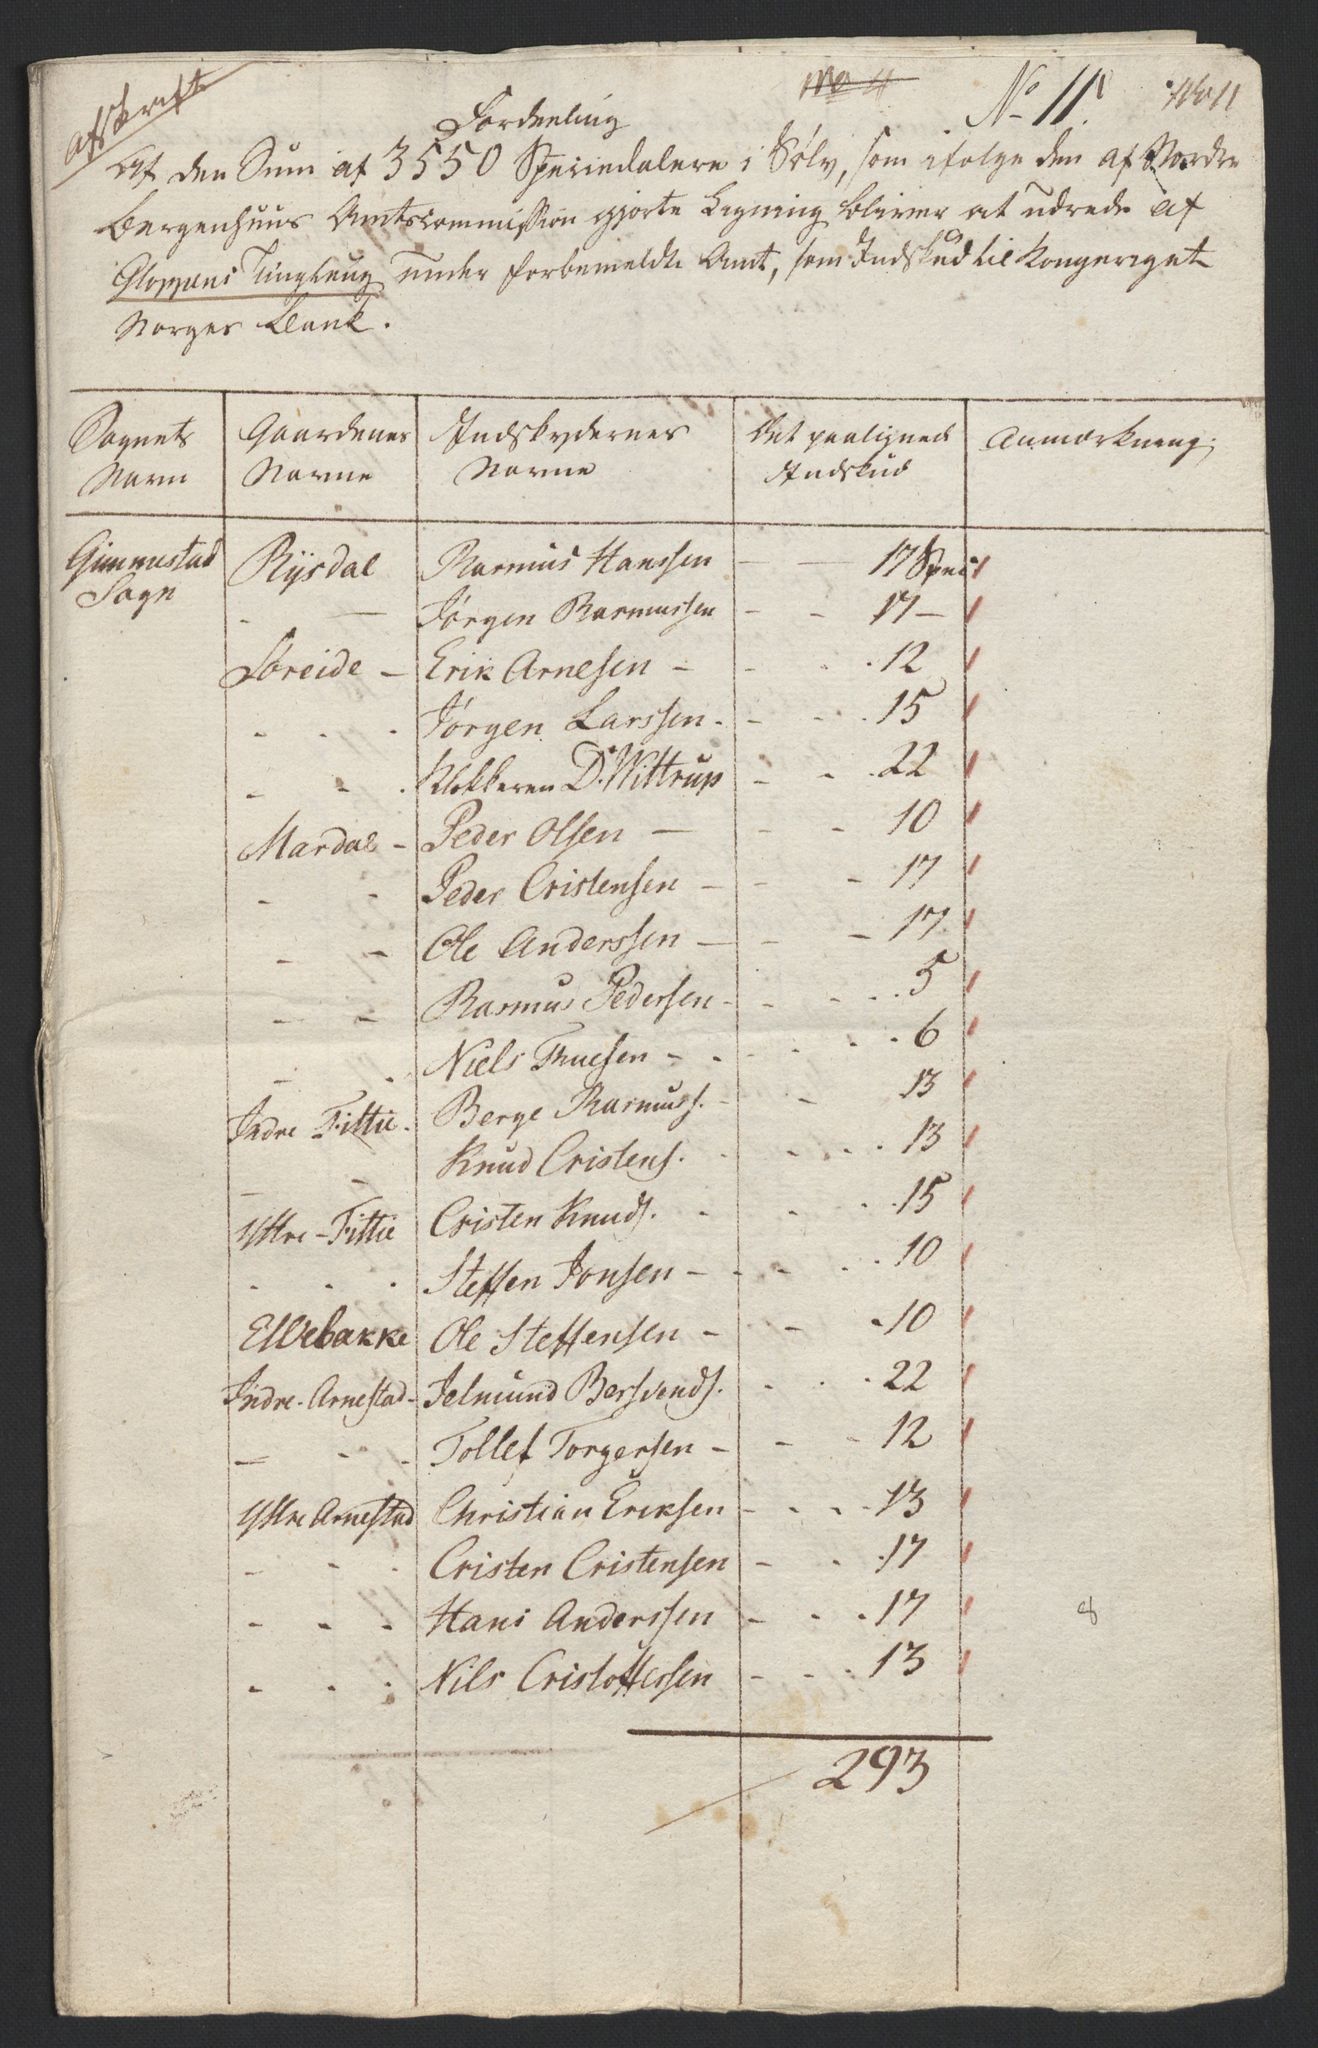 Afskrift
No 11 No 11. No 11
Fordeeling
Af den Sum af 3550 Speciedalere i Sølv, som ifølge den af Nordre
Bergenhuus Amtscommission gjorte Ligning bliver at udrede af
Gloppens Tinglaug under forbemeldte Amt, som Indskud til Kongeriget
Norges Bank.
Sognets Navn | Gaardenes Navne | Indskydernes Navne | Det paalignede Indskud | Anmærkning
Gimmestad Sogn | Rysdal | Rasmus Hanssen — — 17 Speci
- — Jørgen Rasmussen - - 17 —
Søreide — Erik Arnesen — - . . 12
- - . Jørgen Larssen. - - . . 15
- - . Klokkeren D. Wittrup - - . 22
Mardal - Peder Olsen — - - 10
- - Peder Cristensen — - - 17
- - Ole Anderssen — - - 17
- - Rasmus Pedersen - - - . . 5
- . Niels Thuesen - . - . . . 6
Indre Fittie. Berge Rasmuss. - - - 13
- - Knud Cristens. . - . . . 13
Yttre - Fittie Cristen Knuds. . - . . 15
. . . Steffen Jonsen - . - . . 10
Elvebakke Ole Steffensen - - - 10
Indre. Arnestad - Jelmund Bersvends. . . . 22
— - . Tollef Torgersen - - - 12
Yttre Arnestad Christian Eriksen - . . . 13
- - . Cristen Cristensen - . . 17
- - - Hans Anderssen - - . 17
- . . Nils Cristoffersen - - . 13
293
8